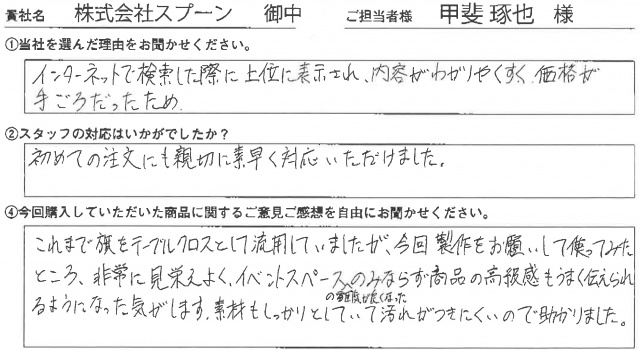 貴社名 株式会社スプーン 御中 ご担当者様 甲斐 琢也 様
①当社を選んだ理由をお聞かせください。
インターネットで検索した際に上位に表示され、内容がわかりやくすく、価格が
手ごろだったため
②スタッフの対応はいかがでしたか?
初めての注文にも親切に素早く対応いただけました。
④今回購入していただいた商品に関するご意見ご感想を自由にお聞かせください。
これまで旗をテーブルクロスとして流用していましたが、今回製作をお願いして使ってみた
ところ、非常に見栄えよく、イベントスペースのみならず商品の高級感もうまく伝えられ
の雰囲気が良くなった
るようになった気がします。素材もしっかりとしていて汚れがつきにくいので助かりました。